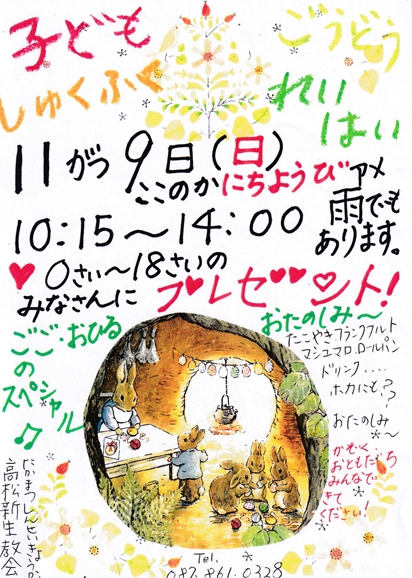 子ども
しゅくふく
ごうどう
れいはい
11がつ9日(日)
ここのかにちようび
10:15～14:00
アメ
雨でも
あります。
♥0さい～18さいの
みなさんに
プレゼント!
ごご・おひる
の
スペシャル
♫
おたのしみ～
たこやきフランクフルト
マシュマロ.ロールパン
ドリンク....
ホカにも??
おたのしみ
～
かぞく、
おともだち
みんなで
きて
ください!
たかまつしんせいきょうかい
高松新生教会
Tel.
087.861.0328